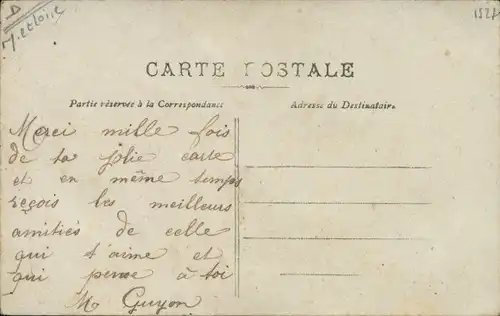 D
M. et Loire
1527
CARTE POSTALE
Partie réservée à la Correspondance
Adresse du Destinataire
Merci mille fois
de ta jolie carte
et en même temps
reçois les meilleurs
amitiés de celle
qui t'aime et
qui pense à toi
M Guyon